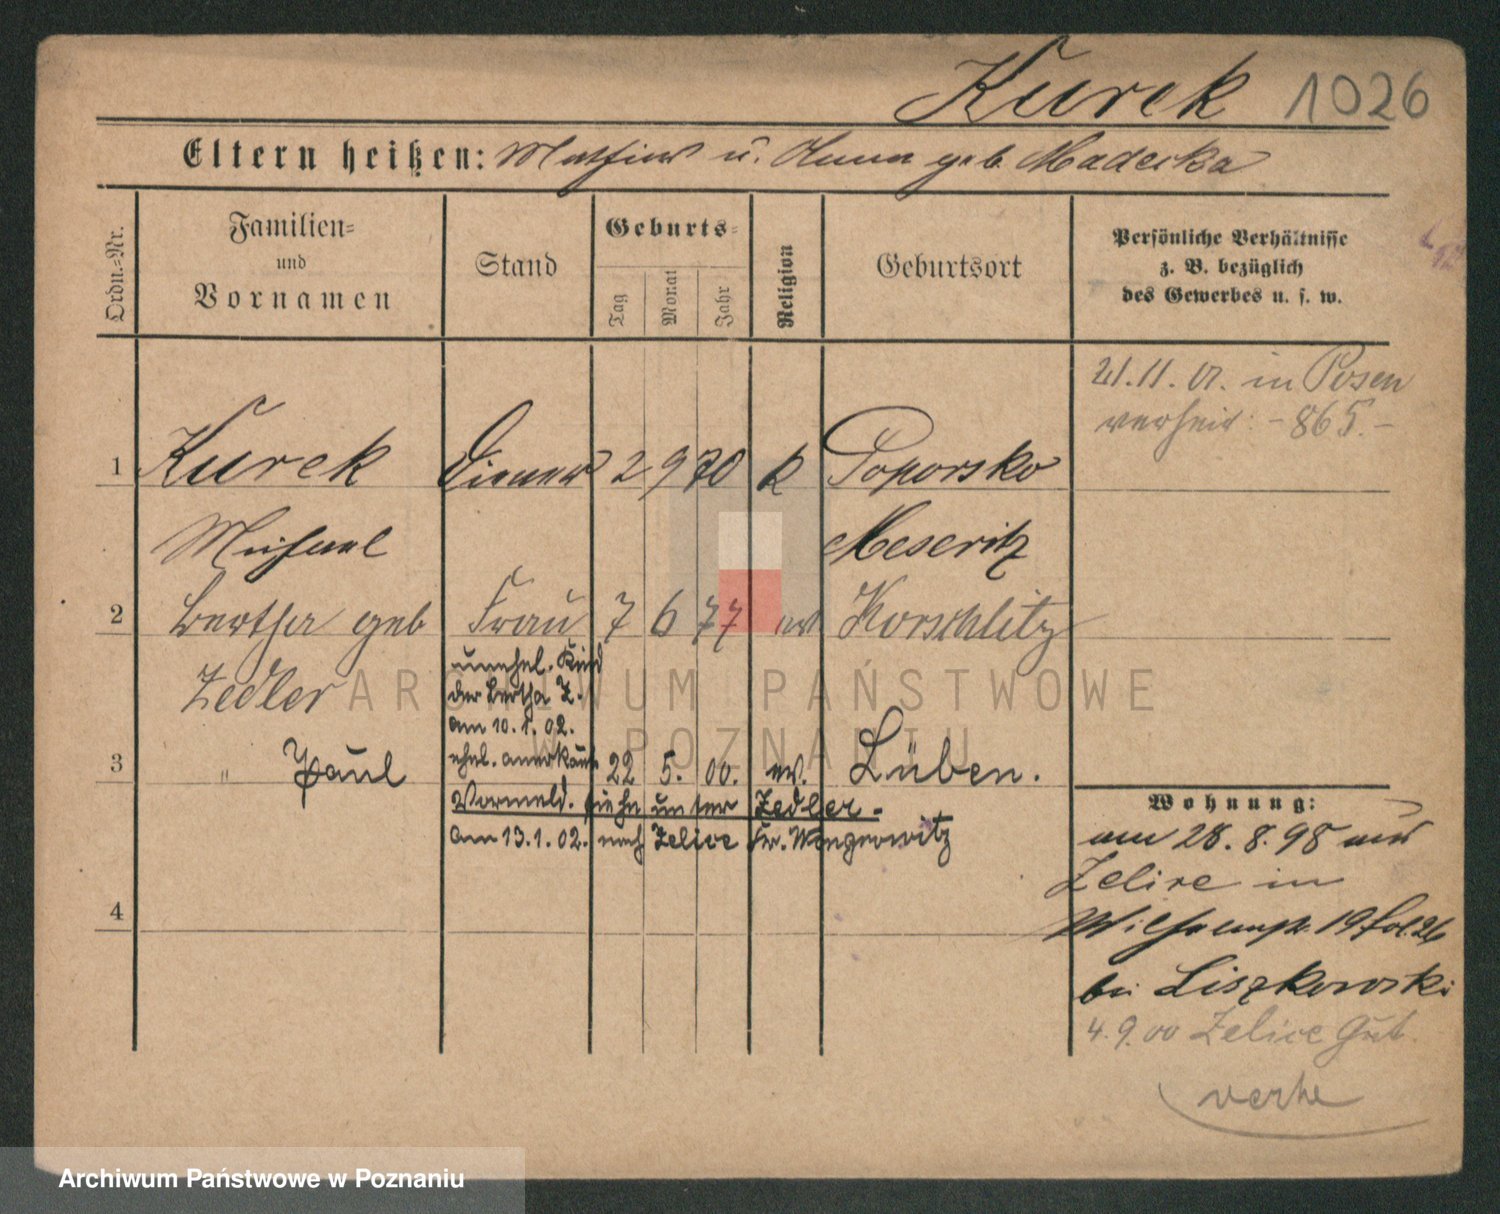 Kurek 1026
Eltern heißen: Mathias u. Anna geb. Maderka
Ordn.-Nr.
Familien-
und
Vornamen
Stand
Geburts-
Tag
Monat
Jahr
Religion
Geburtsort
Persönliche Verhältnisse
z. B. bezüglich
des Gewerbes u. s. w.
21.11.01. in Posen
verheir: - 865. -
1 Kurek Diener 2 9 70 k Poporsko
Michael Meseritz
2 Bertha geb Frau 7 6 77 ev Korschlitz
Zedler
unehel. Kind
der Bertha Z.
am 10.1.02.
ehel. anerkannt
3 " Paul 22 5. 00. ev. Lüben.
Vormeld. siehe unter Zedler.
am 13.1.02. nach Zelice Kr. Wongrowitz
4
Wohnung:
am 28.8.98 aus
Zelice in
19 26
bei Liszkowski
4.9.00 Zelice Gut.
verhe
ARCHIWUM PAŃSTWOWE
W POZNANIU
Archiwum Państwowe w Poznaniu